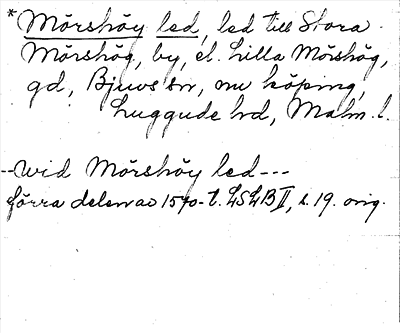 * Mörshöy led, led till Stora
Mörshög, by, el. Lilla Mörshög,
gd, Bjuvs sn, nu köping,
Luggude hd, Malm. l.
--wid Mörshöy led---
förra delen av 1570-t. LSLB II, s. 19. orig.